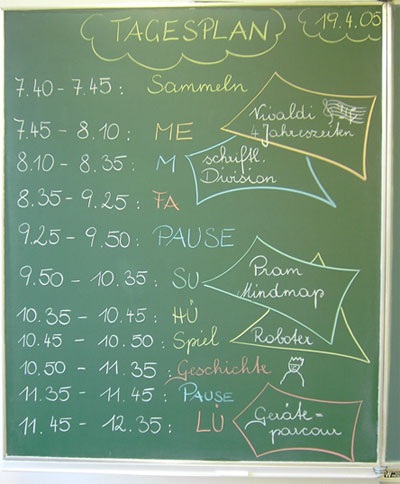 TAGESPLAN
19.4.05
7.40 - 7.45: Sammeln
7.45 - 8.10: ME
Vivaldi
4 Jahreszeiten
8.10 - 8.35: M
schriftl.
Division
8.35 - 9.25: FA
9.25 - 9.50: PAUSE
9.50 - 10.35: SU
Pram
Mindmap
10.35 - 10.45: HÜ
10.45 - 10.50: Spiel
Roboter
10.50 - 11.35: Geschichte
11.35 - 11.45: PAUSE
11.45 - 12.35: LÜ
Geräte=
parcour